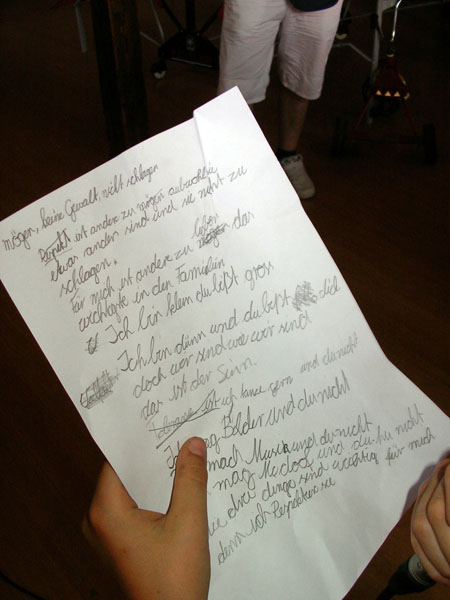 mögen, keine Gewalt, nicht schlagen
ist andere zu mögen auch wen sie
etwas anders sind und sie nicht zu
schlagen.
Für mich ist andere zu lieben das
wichtigste in den Familien
Ich bin klein du bist gros
Ich bin dünn und du bist dick
doch wir sind wie wir sind
das ist der Sinn.
ich tanze gern und du nicht
Ich mag Bilder und du nicht
mach Musik und du nicht
mag und du nicht
drei dinge sind wichtig für mich
denn ich Respektire sie